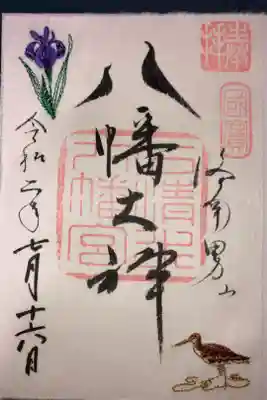 奉拝
国寶
洛南男山
八幡大神
石清水
八幡宮
令和二年七月十六日